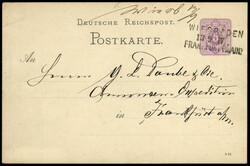 DEUTSCHE REICHSPOST.
POSTKARTE.
WIESBADEN
FRANKFURT
An
Herren G. L. Daube & Co.
Annoncen Expedition
in Frankfurt a/m.